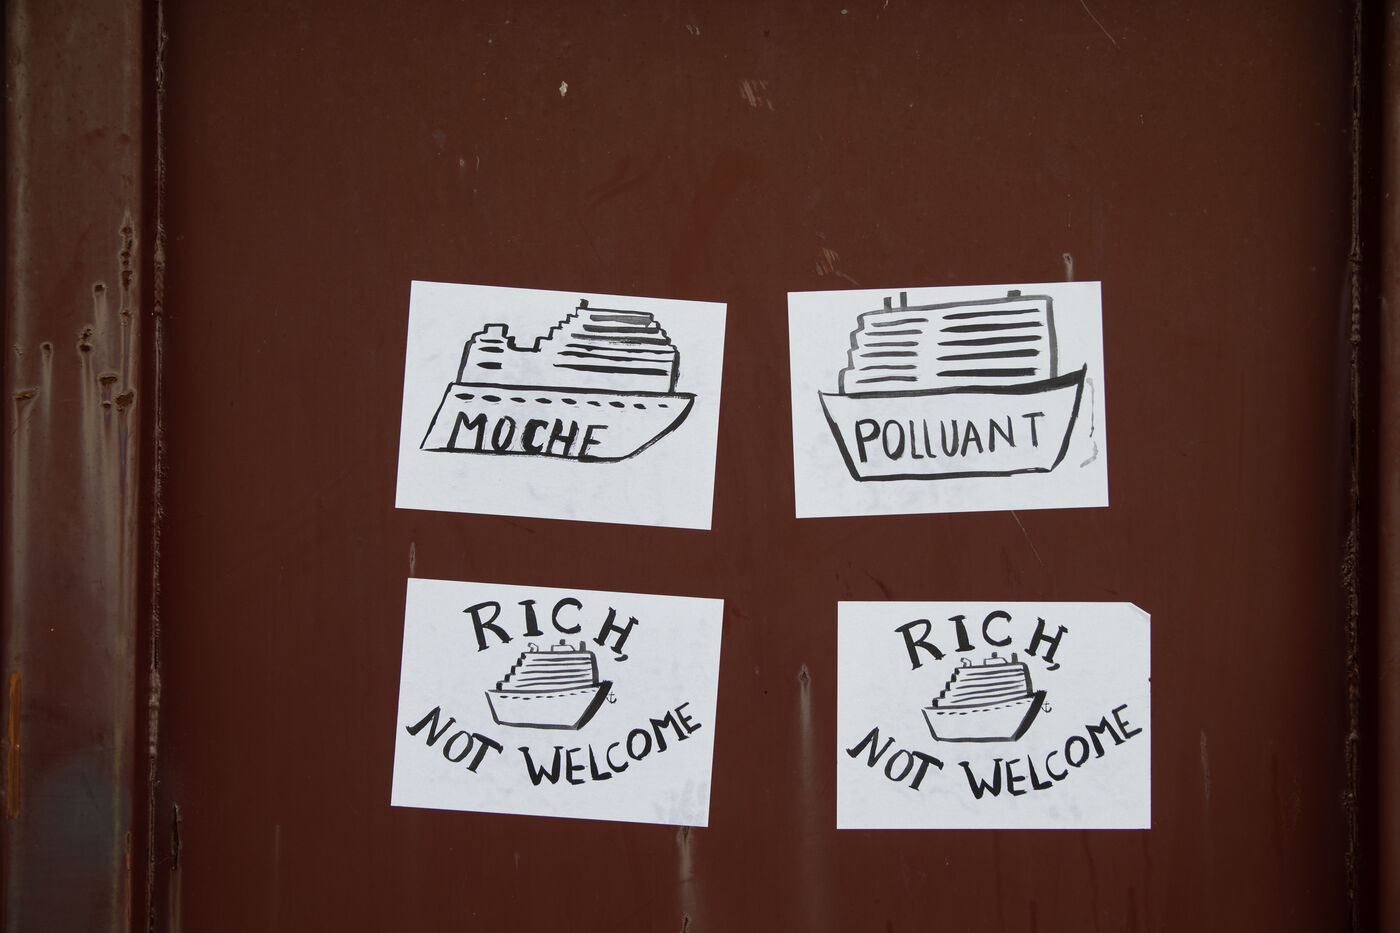 MOCHE
POLLUANT
RICH,
NOT WELCOME
RICH,
NOT WELCOME